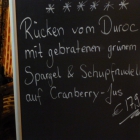 Rücken vom Duroc
mit gebratenem grünem
Spargel & Schupfnudel
auf Cranberry-Jus